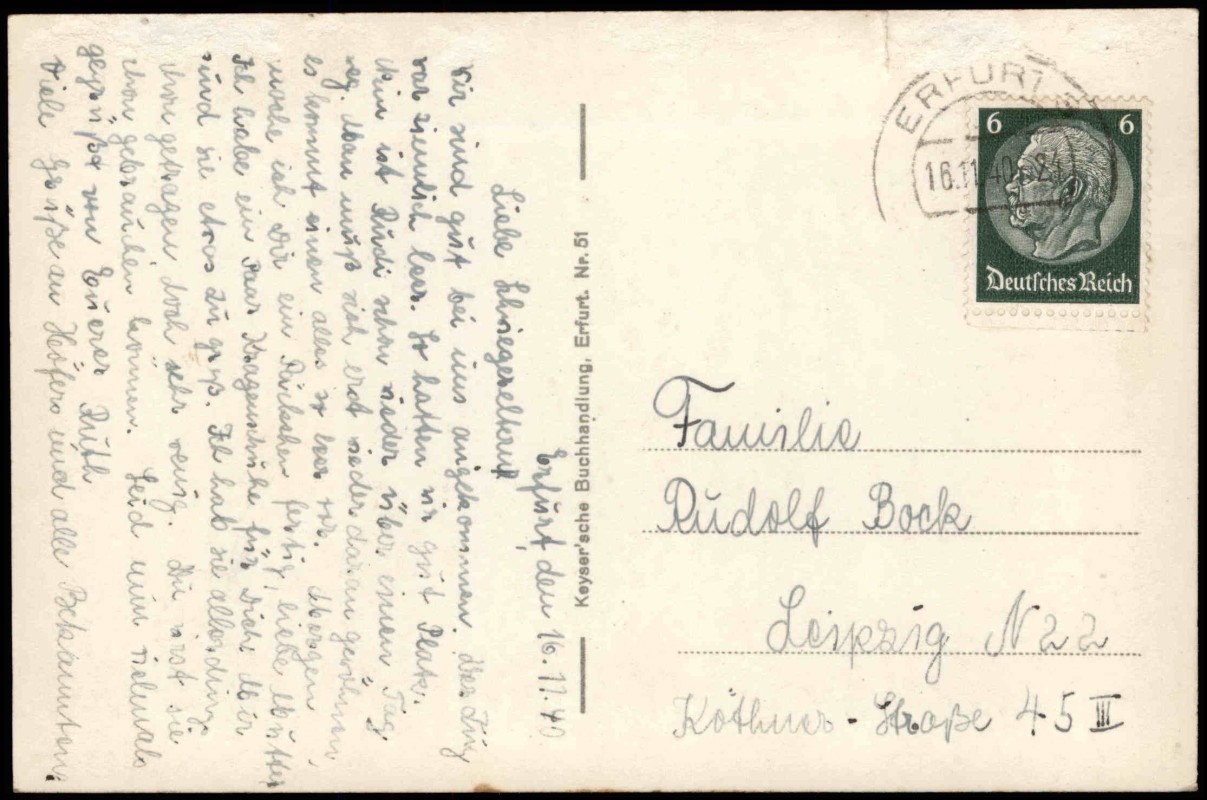 Erfurt, den 16.11.40
Liebe Schwiegereltern!
Wir sind gut bei uns angekommen. Der Zug
war ziemlich leer. So hatten wir gut Platz.
Nun ist Rudi schon wieder über einen Tag
weg. Man muß sich erst wieder daran gewöhnen,
es kommt einen alles so leer vor. Morgen
werde ich Dir ein Päckchen fertig, liebe Mutter
Ich habe ein Paar Hausschuhe für Dich. Mir
sind sie etwas zu groß. Ich hab sie allerdings
schon getragen, doch sehr wenig. Du wirst sie
schon gebrauchen können. Seid nun vielmals
gegrüßt von Eurer Ruth
Viele Grüße an Höfers und alle Bekannten.
Keyser'sche Buchhandlung, Erfurt. Nr. 51
ERFURT
16.11.40
6 6
Deutsches Reich
Familie
Rudolf Bock
Leipzig N 22
Köthner-Straße 45 III